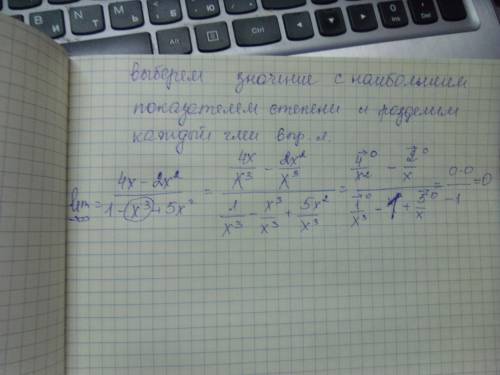 выберем значение с наибольшим
показателем степени и разделим
каждый член выр.
lim = (4x - 2x²)/(1 - x³ + 5x²) = (4x/x³ - 2x²/x³)/(1/x³ - x³/x³ + 5x²/x³) = (4/x² →0 - 2/x →0)/(1/x³ →0 - 1 + 5/x →0) = (0-0)/(-1) = 0
x→∞